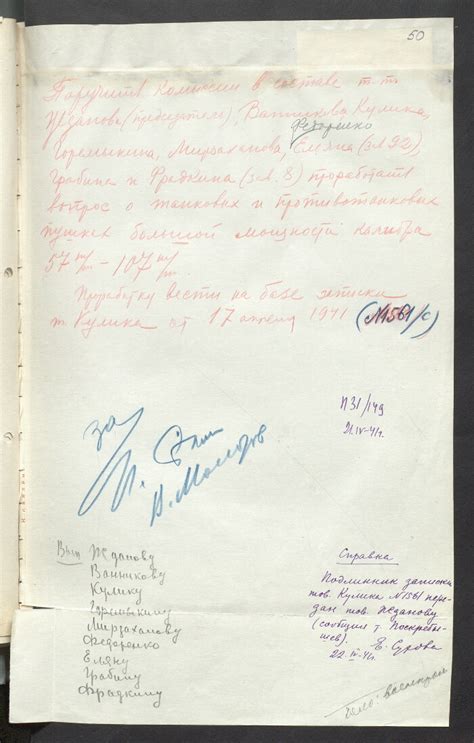 50
Поручить комиссии в составе т.т.
Жданова (председатель), Ванникова, Кулика,
Федоренко
Горемыкина, Мирзаханова, Еляна (зав. 92),
Грабина и Фрадкина (зав. 8) проработать
вопрос о танковых и противотанковых
пушках большой мощности калибра
57 м/м – 107 м/м.
Проработку вести на базе записки
т. Кулика от 17 апреля 1941 (№1561/с)
П31/149
21.IV-41г.
за
И. Сталин
В. Молотов
Вып Жданову
Ванникову
Кулику
Горемыкину
Мирзаханову
Федоренко
Еляну
Грабину
Фрадкину
Справка
Подлинник записки
тов. Кулика №1561 пере-
дан тов. Жданову
(сообщил т. Поскребы-
шев). Е. Сурова
22.IV-41г.